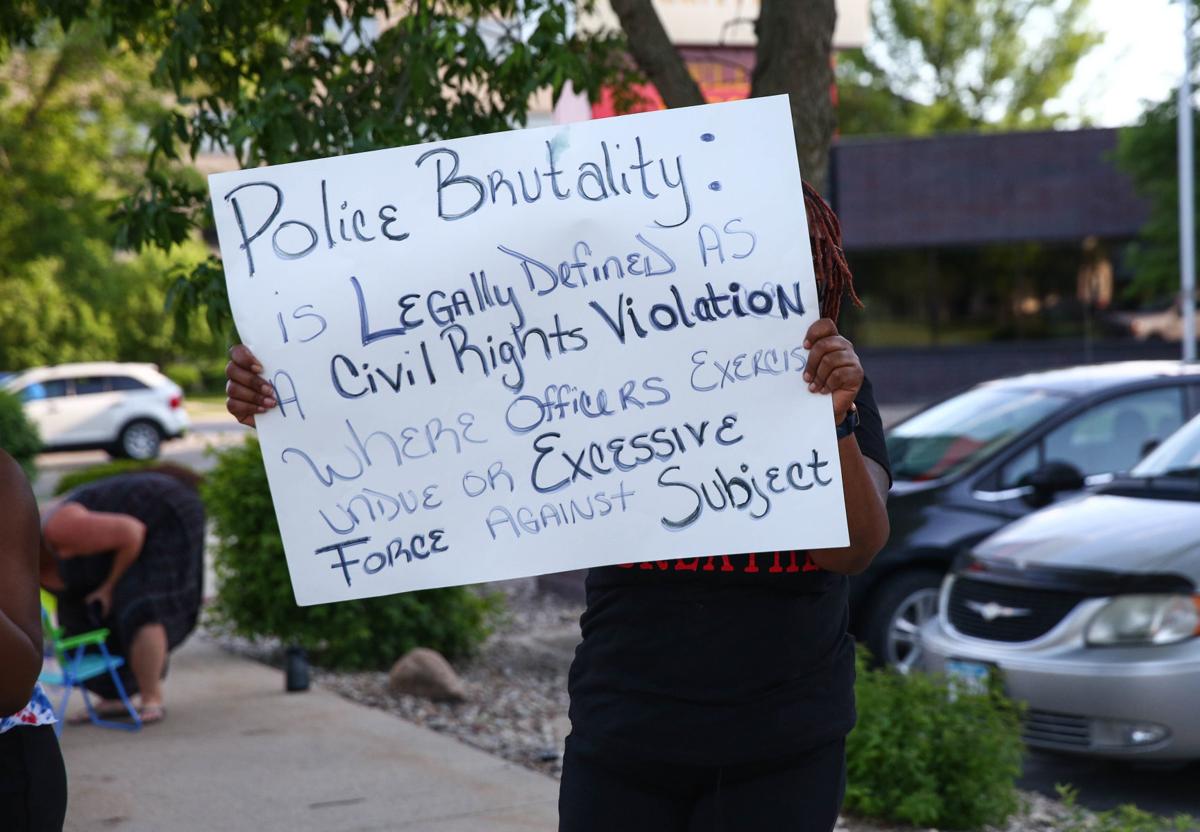 Police Brutality:
is Legally Defined As
A Civil Rights Violation
Where Officers Exercis
undue or Excessive
Force Against Subject